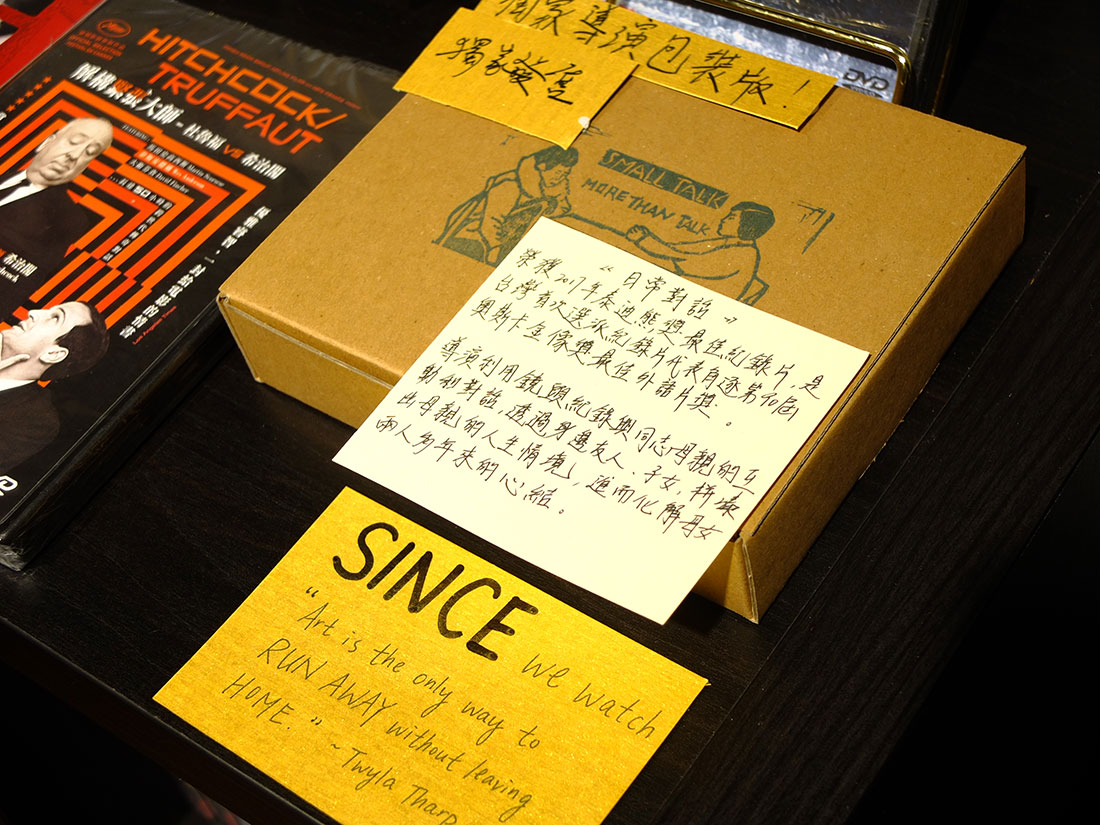 獨家導演包裝版！
獨家發售
DVD
HITCHCOCK/
TRUFFAUT
解構緊張大師 - 杜魯福 VS 希治閣
FEATURING:
馬田史高西斯 Martin Scorsese
Wes Anderson
大衛芬查 David Fincher
希治閣
Los Angeles Times
SMALL TALK
MORE THAN TALK
“日常對話”
榮獲2017年泰迪熊獎最佳紀錄片，是
台灣首次選派紀錄片代表角逐第90屆
奧斯卡金像獎最佳外語片獎。
導演利用鏡頭紀錄與同志母親的互
動和對話，透過身邊友人、子女，拼湊
出母親的人生情境，進而化解母女
兩人多年來的心結。
SINCE we watch
“Art is the only way to
RUN AWAY without leaving
HOME.”
~ Twyla Tharp